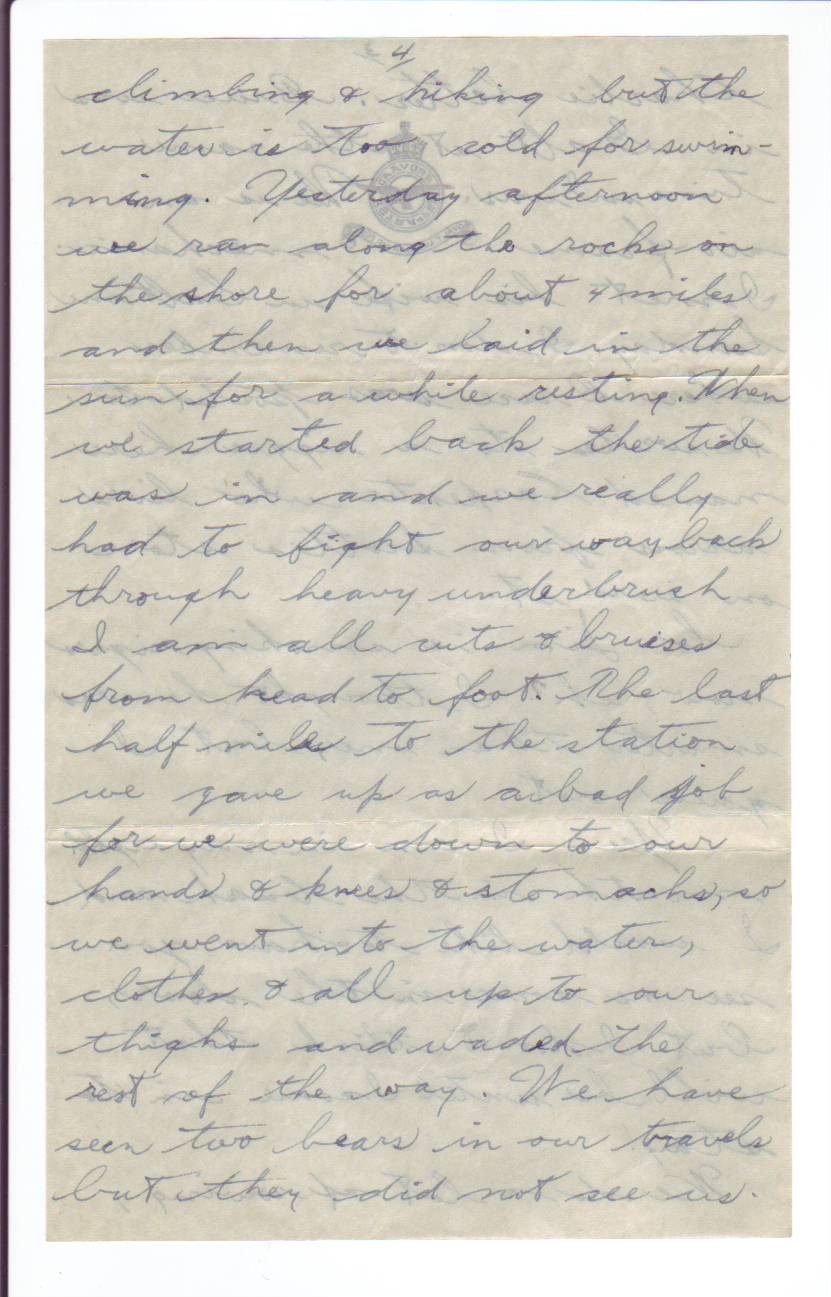 4
climbing & hiking but the
water is too cold for swim-
ming. Yesterday afternoon
we ran along the rocks on
the shore for about 4 miles
and then we laid in the
sun for a while resting. When
we started back the tide
was in and we really
had to fight our way back
through heavy underbrush
I am all cuts & bruises
from head to foot. The last
half mile to the station
we gave up as a bad job
for we were down to our
hands & knees & stomachs, so
we went into the water,
clothes & all up to our
thighs and waded the
rest of the way. We have
seen two bears in our travels
but they did not see us.